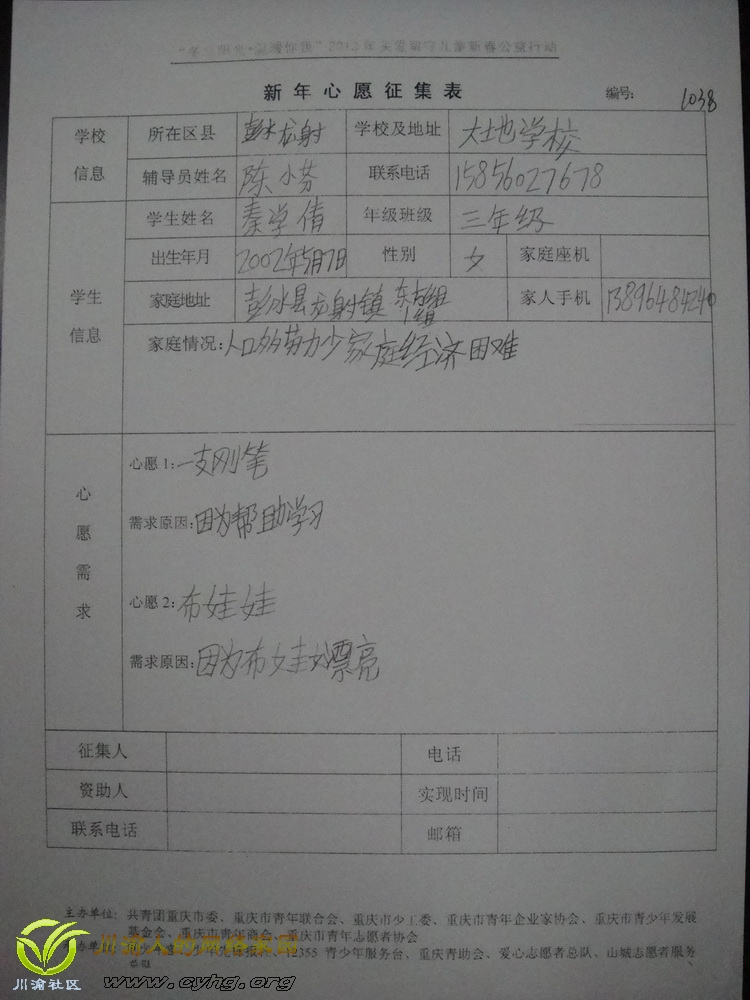 2012年关爱留守儿童新春公益行动
新年心愿征集表 编号: 1038
学校信息 所在区县 彭水龙射 学校及地址 大地学校
辅导员姓名 陈小芬 联系电话 15856027678
学生信息 学生姓名 秦学倩 年级班级 三年级
出生年月 2002年5月7日 性别 女 家庭座机
家庭地址 彭水县龙射镇 家人手机 13896484240
家庭情况: 人口多劳力少家庭经济困难
心愿需求
心愿1: 一支刚笔
需求原因: 因为帮助学习
心愿2: 布娃娃
需求原因: 因为布娃娃漂亮
征集人 电话
资助人 实现时间
联系电话 邮箱
主办单位: 共青团重庆市委、重庆市青年联合会、重庆市少工委、重庆市青年企业家协会、重庆市青少年发展
基金会、重庆市青年商会、重庆市青年志愿者协会
12355 青少年服务台、重庆青助会、爱心志愿者总队、山城志愿者服务
川渝社区
www.cyhg.org